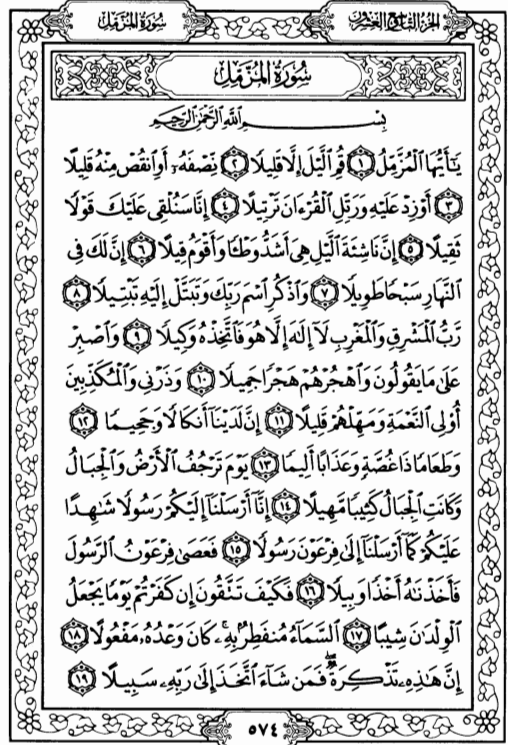 سُورَةُ المُزَّمِّل الجُزءُ التَّاسِعُ وَالعِشرُونَ
سُورَةُ المُزَّمِّل
بِسْمِ ٱللَّهِ ٱلرَّحْمَٰنِ ٱلرَّحِيمِ
يَٰٓأَيُّهَا ٱلْمُزَّمِّلُ ١ قُمِ ٱلَّيْلَ إِلَّا قَلِيلًا ٢ نِّصْفَهُۥٓ أَوِ ٱنقُصْ مِنْهُ قَلِيلًا
٣ أَوْ زِدْ عَلَيْهِ وَرَتِّلِ ٱلْقُرْءَانَ تَرْتِيلًا ٤ إِنَّا سَنُلْقِى عَلَيْكَ قَوْلًا
ثَقِيلًا ٥ إِنَّ نَاشِئَةَ ٱلَّيْلِ هِىَ أَشَدُّ وَطْـًٔا وَأَقْوَمُ قِيلًا ٦ إِنَّ لَكَ فِى
ٱلنَّهَارِ سَبْحًا طَوِيلًا ٧ وَٱذْكُرِ ٱسْمَ رَبِّكَ وَتَبَتَّلْ إِلَيْهِ تَبْتِيلًا ٨
رَّبُّ ٱلْمَشْرِقِ وَٱلْمَغْرِبِ لَآ إِلَٰهَ إِلَّا هُوَ فَٱتَّخِذْهُ وَكِيلًا ٩ وَٱصْبِرْ
عَلَىٰ مَا يَقُولُونَ وَٱهْجُرْهُمْ هَجْرًا جَمِيلًا ١٠ وَذَرْنِى وَٱلْمُكَذِّبِينَ
أُو۟لِى ٱلنَّعْمَةِ وَمَهِّلْهُمْ قَلِيلًا ١١ إِنَّ لَدَيْنَآ أَنكَالًا وَجَحِيمًا ١٢
وَطَعَامًا ذَا غُصَّةٍ وَعَذَابًا أَلِيمًا ١٣ يَوْمَ تَرْجُفُ ٱلْأَرْضُ وَٱلْجِبَالُ
وَكَانَتِ ٱلْجِبَالُ كَثِيبًا مَّهِيلًا ١٤ إِنَّآ أَرْسَلْنَآ إِلَيْكُمْ رَسُولًا شَٰهِدًا
عَلَيْكُمْ كَمَآ أَرْسَلْنَآ إِلَىٰ فِرْعَوْنَ رَسُولًا ١٥ فَعَصَىٰ فِرْعَوْنُ ٱلرَّسُولَ
فَأَخَذْنَٰهُ أَخْذًا وَبِيلًا ١٦ فَكَيْفَ تَتَّقُونَ إِن كَفَرْتُمْ يَوْمًا يَجْعَلُ
ٱلْوِلْدَٰنَ شِيبًا ١٧ ٱلسَّمَآءُ مُنفَطِرٌۢ بِهِۦ ۚ كَانَ وَعْدُهُۥ مَفْعُولًا ١٨
إِنَّ هَٰذِهِۦ تَذْكِرَةٌ ۖ فَمَن شَآءَ ٱتَّخَذَ إِلَىٰ رَبِّهِۦ سَبِيلًا ١٩
٥٧٤